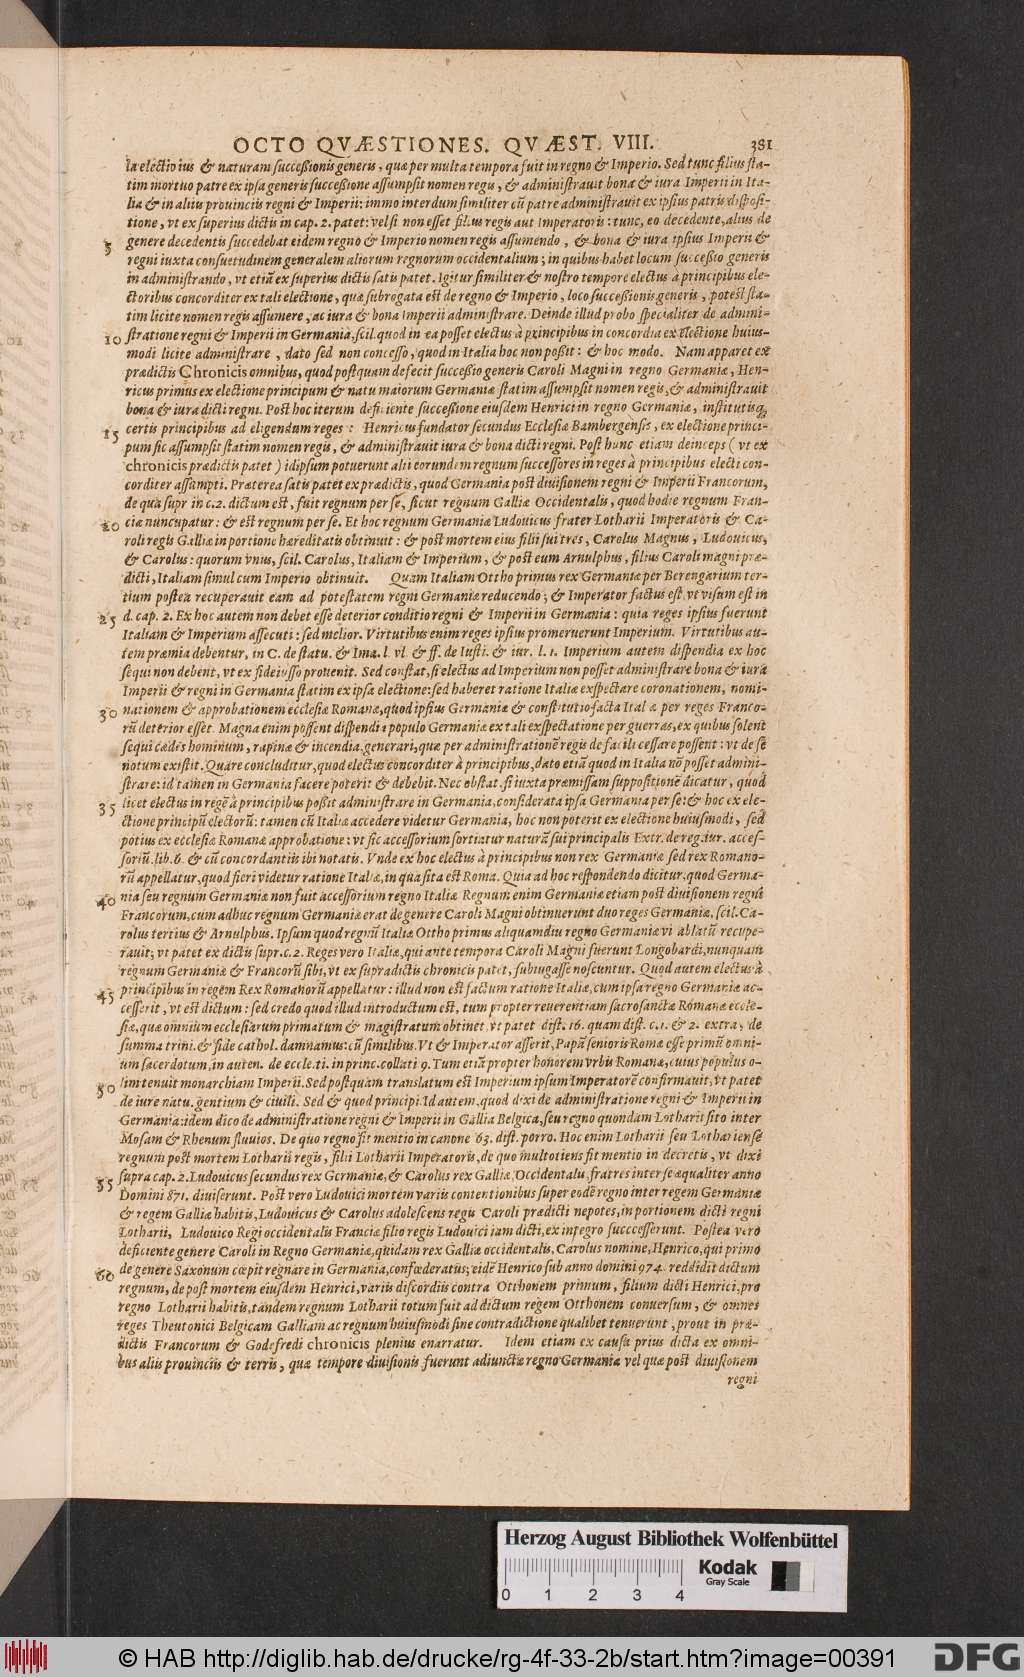 OCTO QVÆSTIONES. QVÆST. VIII. 381
la electio ius & naturam succeßionis generis, quæ per multa tempora fuit in regno & Imperio. Sed tunc filius sta-
tim mortuo patre ex ipsa generis succeßione assumpsit nomen regis, & administrauit bona & iura Imperii in Ita-
lia & in aliis prouinciis regni & Imperii: immo interdum similiter cũ patre administrauit ex ipsius patris disposi-
tione, vt ex superius dictis in cap. 2. patet: vel si non esset filius regis aut Imperatoris: tunc, eo decedente, alius de
5 genere decedentis succedebat eidem regno & Imperio nomen regis assumendo, & bona & iura ipsius Imperii &
regni iuxta consuetudinem generalem aliorum regnorum occidentalium; in quibus habet locum succeßio generis
in administrando, vt etiã ex superius dictis satis patet. Igitur similiter & nostro tempore electus à principibus ele-
ctoribus concorditer ex tali electione, quæ subrogata est de regno & Imperio, loco succeßionis generis, potest sta-
tim licite nomen regis assumere, ac iura & bona Imperii administrare. Deinde illud probo specialiter de admini-
10 stratione regni & Imperii in Germania, scil. quod in ea posset electus à principibus in concordia ex electione huius-
modi licite administrare, dato sed non concesso, quod in Italia hoc non poßit: & hoc modo. Nam apparet ex
prædictis Chronicis omnibus, quod postquam defecit succeßio generis Caroli Magni in regno Germaniæ, Hen-
ricus primus ex electione principum & natu maiorum Germaniæ statim assumpsit nomen regis, & administrauit
bona & iura dicti regni. Post hoc iterum deficiente successione eiusdem Henrici in regno Germaniæ, institutisq;
15 certis principibus ad eligendum reges: Henricus fundator secundus Ecclesiæ Bambergensis, ex electione princi-
pum sic assumpsit statim nomen regis, & administrauit iura & bona dicti regni. Post hunc etiam deinceps (vt ex
chronicis prædictis patet) idipsum potuerunt alii eorundem regnum successores in reges à principibus electi con-
corditer assumpti. Præterea satis patet ex prædictis, quod Germania post diuisionem regni & Imperii Francorum,
de qua supr in c. 2. dictum est, fuit regnum per se, sicut regnum Galliæ Occidentalis, quod hodie regnum Fran-
20 ciæ nuncupatur: & est regnum per se. Et hoc regnum Germaniæ Ludouicus frater Lotharii Imperatoris & Ca-
roli regis Galliæ in portione hæreditatis obtinuit: & post mortem eius filii sui tres, Carolus Magnus, Ludouicus,
& Carolus: quorum vnus, scil. Carolus, Italiam & Imperium, & post eum Arnulphus, filius Caroli magni præ-
dicti, Italiam simul cum Imperio obtinuit. Quam Italiam Ottho primus rex Germaniæ per Berengarium ter-
tium postea recuperauit eam ad potestatem regni Germaniæ reducendo; & Imperator factus est, vt visum est in
25 d. cap. 2. Ex hoc autem non debet esse deterior conditio regni & Imperii in Germania: quia reges ipsius fuerunt
Italiam & Imperium assecuti: sed melior. Virtutibus enim reges ipsius promeruerunt Imperium. Virtutibus au-
tem præmia debentur, in C. de statu. & Ima. l. vl. & ff. de Iusti. & iur. l. 1. Imperium autem dispendia ex hoc
sequi non debent, vt ex fideiusso prouenit. Sed constat, si electus ad Imperium non posset administrare bona & iura
Imperii & regni in Germania statim ex ipsa electione: sed haberet ratione Italiæ exspectare coronationem, nomi-
30 nationem & approbationem ecclesiæ Romanæ, quod ipsius Germaniæ & constitutio facta Italæ per reges Franco-
rũ deterior esset. Magna enim possent dispendia populo Germaniæ ex tali exspectatione per guerras, ex quibus solent
sequi cædes hominum, rapinæ & incendia, generari, quæ per administrationẽ regis de facili cessare possent: vt de se
notum existit. Quare concluditur, quod electus concorditer à principibus, dato etiã quod in Italia nõ posset admini-
strare: id tamen in Germania facere poterit & debebit. Nec obstat, si iuxta præmissam suppositionẽ dicatur, quod
35 licet electus in regẽ à principibus poßit administrare in Germania, considerata ipsa Germania per se: & hoc ex ele-
ctione principũ electorũ: tamen cũ Italiæ accedere videtur Germania, hoc non poterit ex electione huiusmodi, sed
potius ex ecclesiæ Romanæ approbatione: vt sic accessorium sortiatur naturã sui principalis Extr. de reg. iur. acces-
soriũ. lib. 6. & cũ concordantiis ibi notatis. Vnde ex hoc electus à principibus non rex Germaniæ sed rex Romano-
rũ appellatur, quod fieri videtur ratione Italiæ, in qua sita est Roma. Quia ad hoc respondendo dicitur, quod Germa-
40 nia seu regnum Germaniæ non fuit accessorium regno Italiæ Regnum enim Germaniæ etiam post diuisionem regni
Francorum, cum adhuc regnum Germaniæ erat de genere Caroli Magni obtinuerunt duo reges Germaniæ, scil. Ca-
rolus tertius & Arnulphus. Ipsum quod regnũ Italiæ Ottho primus aliquamdiu regno Germaniæ vi ablatũ recupe-
rauit; vt patet ex dictis supr. c. 2. Reges vero Italiæ, qui ante tempora Caroli Magni fuerunt Longobardi, nunquam
regnum Germaniæ & Francorũ sibi, vt ex supradictis chronicis patet, subiugasse noscuntur. Quod autem electus à
45 principibus in regem Rex Romanorũ appellatur: illud non est factum ratione Italiæ, cum ipsa regno Germaniæ ac-
cesserit, vt est dictum: sed credo quod illud introductum est, tum propter reuerentiam sacrosanctæ Romanæ eccle-
siæ, quæ omnium ecclesiarum primatum & magistratum obtinet, vt patet dist. 16. quam dist. c. 1. & 2. extra, de
summa trini. & fide cathol. damnamus: cũ similibus. Vt & Imperator asserit, Papã senioris Romæ esse primũ omni-
um sacerdotum, in auten. de eccle. ti. in princ. collati 9. Tum etiã propter honorem vrbis Romanæ, cuius populus o-
50 lim tenuit monarchiam Imperii. Sed postquam translatum est Imperium ipsum Imperatorẽ confirmauit, vt patet
de iure natu. gentium & ciuili. Sed & quod principi. Id autem, quod dixi de administratione regni & Imperii in
Germania: idem dico de administratione regni & Imperii in Gallia Belgica, seu regno quondam Lotharii sito inter
Mosam & Rhenum fluuios. De quo regno fit mentio in canone 63. dist. porro. Hoc enim Lotharii seu Lothariense
regnum post mortem Lotharii regis, filii Lotharii Imperatoris, de quo multotiens fit mentio in decretis, vt dixi
55 supra cap. 2. Ludouicus secundus rex Germaniæ, & Carolus rex Galliæ Occidentalis, fratres inter se æqualiter anno
Domini 871. diuiserunt. Post vero Ludouici mortem variis contentionibus super eodẽ regno inter regem Germaniæ
& regem Galliæ habitis, Ludouicus & Carolus adolescens regis Caroli prædicti nepotes, in portionem dicti regni
Lotharii, Ludouico Regi occidentalis Franciæ filio regis Ludouici iam dicti, ex integro succcesserunt. Postea vero
deficiente genere Caroli in Regno Germaniæ, quidam rex Galliæ occidentalis, Carolus nomine, Henrico, qui primo
60 de genere Saxonum cœpit regnare in Germania, confœderatus; eidẽ Henrico sub anno domini 974. reddidit dictum
regnum, de post mortem eiusdem Henrici, variis discordiis contra Otthonem primum, filium dicti Henrici, pro
regno Lotharii habitis, tandem regnum Lotharii totum fuit ad dictum regem Otthonem conuersum, & omnes
reges Theutonici Belgicam Galliam ac regnum huiusmodi sine contradictione qualibet tenuerunt, prout in præ-
dictis Francorum & Godefredi chronicis plenius enarratur. Idem etiam ex causa prius dicta ex omni-
bus aliis prouinciis & terris, quæ tempore diuisionis fuerunt adiunctæ regno Germaniæ vel quæ post diuisionem
regni
Herzog August Bibliothek Wolfenbüttel
0 1 2 3 4
Kodak
Gray Scale
© HAB http://diglib.hab.de/drucke/rg-4f-33-2b/start.htm?image=00391
DFG